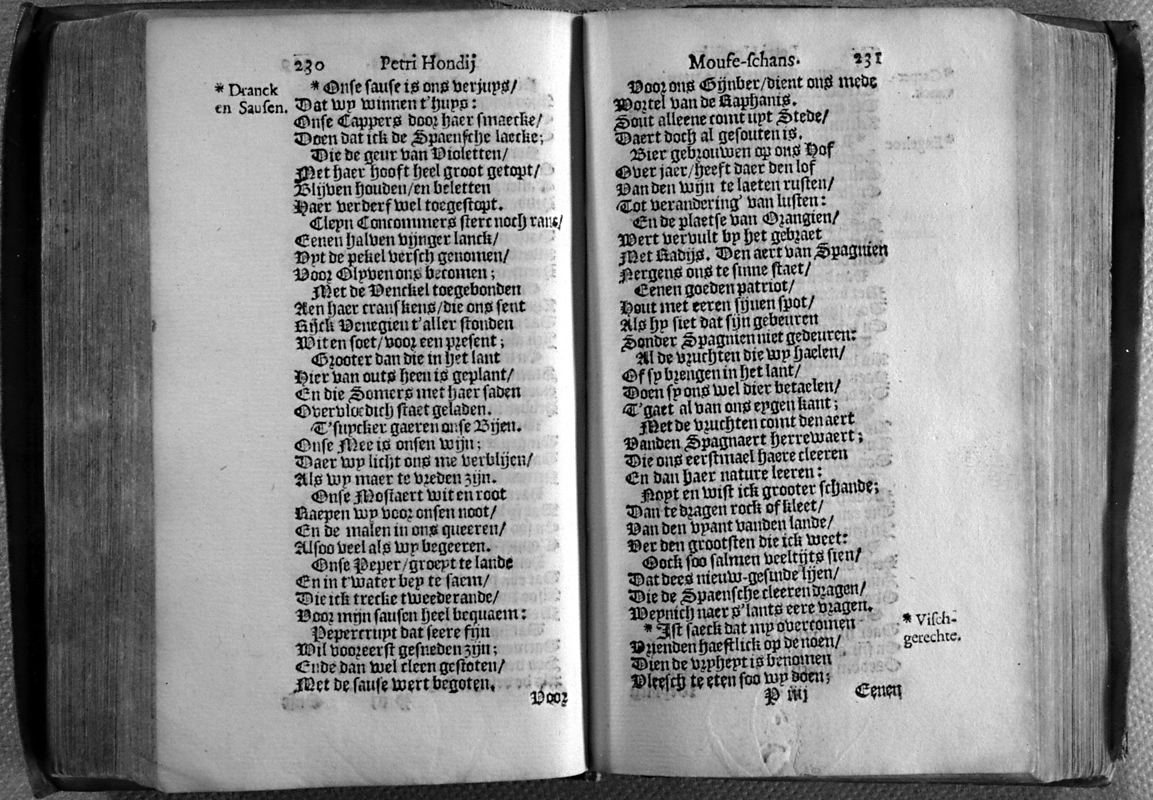 230 Petri Hondij
* Dranck
en Sausen.
* Onse sause is ons verjuys/
Dat wy winnen t'huys:
Onse Cappers door haer smaecke/
Doen dat ick de Spaensche laecke;
Die de geur van Violetten/
Met haer hooft heel groot getopt/
Blijven houden/en beletten
Haer verderf wel toegestopt.
Cleyn Concommers sterc noch rans/
Eenen halven vijnger lanck/
Uyt de pekel versch genomen/
Voor Olyven ons becomen;
Met de Venckel toegebonden
Aen haer cranskens/die ons sent
Rijck Venegien t'aller stonden
Wit en soet/voor een present;
Grooter dan die in het lant
Hier van outs heen is geplant/
En die Somers met haer saden
Overvloedich staet geladen.
T'suycker gaeren onse Bijen.
Onse Mee is onsen wijn;
Daer wy licht ons me verblijen/
Als wy maer te vreden zijn.
Onse Mostaert wit en root
Raepen wy voor onsen noot/
En de malen in ons queeren/
Alsoo veel als wy begeeren.
Onse Peper/groeyt te lande
En in t'water bey te saem/
Die ick trecke tweederande/
Voor mijn sausen heel bequaem:
Pepercruyt dat seere fijn
Wil vooreerst gesneden zijn;
Ende dan wel cleen gestoten/
Met de sause wert begoten.
Voor
Mouse-schans. 231
Voor ons Gijnber/dient ons mede
Wortel van de Raphanis.
Sout alleene comt uyt Stede/
Daert doch al gesouten is.
Bier gebrouwen op ons Hof
Over jaer/heeft daer den lof
Van den wijn te laeten rusten/
Tot verandering' van lusten:
En de plaetse van Orangien/
Wert vervult by het gebraet
Met Radijs. Den aert van Spagnien
Nergens ons te sinne staet/
Eenen goeden patriot/
Hout met eeren sijnen spot/
Als hy siet dat sijn gebeuren
Sonder Spagnien niet gedeuren:
Al de vruchten die wy haelen/
Of sy brengen in het lant/
Doen sy ons wel dier betaelen/
T'gaet al van ons eygen kant;
Met de vruchten comt den aert
Vanden Spagnaert herrewaert;
Die ons eerstmael haere cleeren
En dan haer nature leeren:
Noyt en wist ick grooter schande;
Dan te dragen rock of kleet/
Van den vyant vanden lande/
Ver den grootsten die ick weet:
Oock soo salmen veeltijts sien/
Dat dees nieuw-gesinde lijen/
Die de Spaensche cleeren dragen/
Weynich naer s'lants eere vragen.
* Ist saeck dat my overcomen
Vrienden haestlick op de noen/
Dien de vryheyt is benomen
Vleesch te eten soo wy doen;
* Visch-
gerechte.
P iiij Eenen